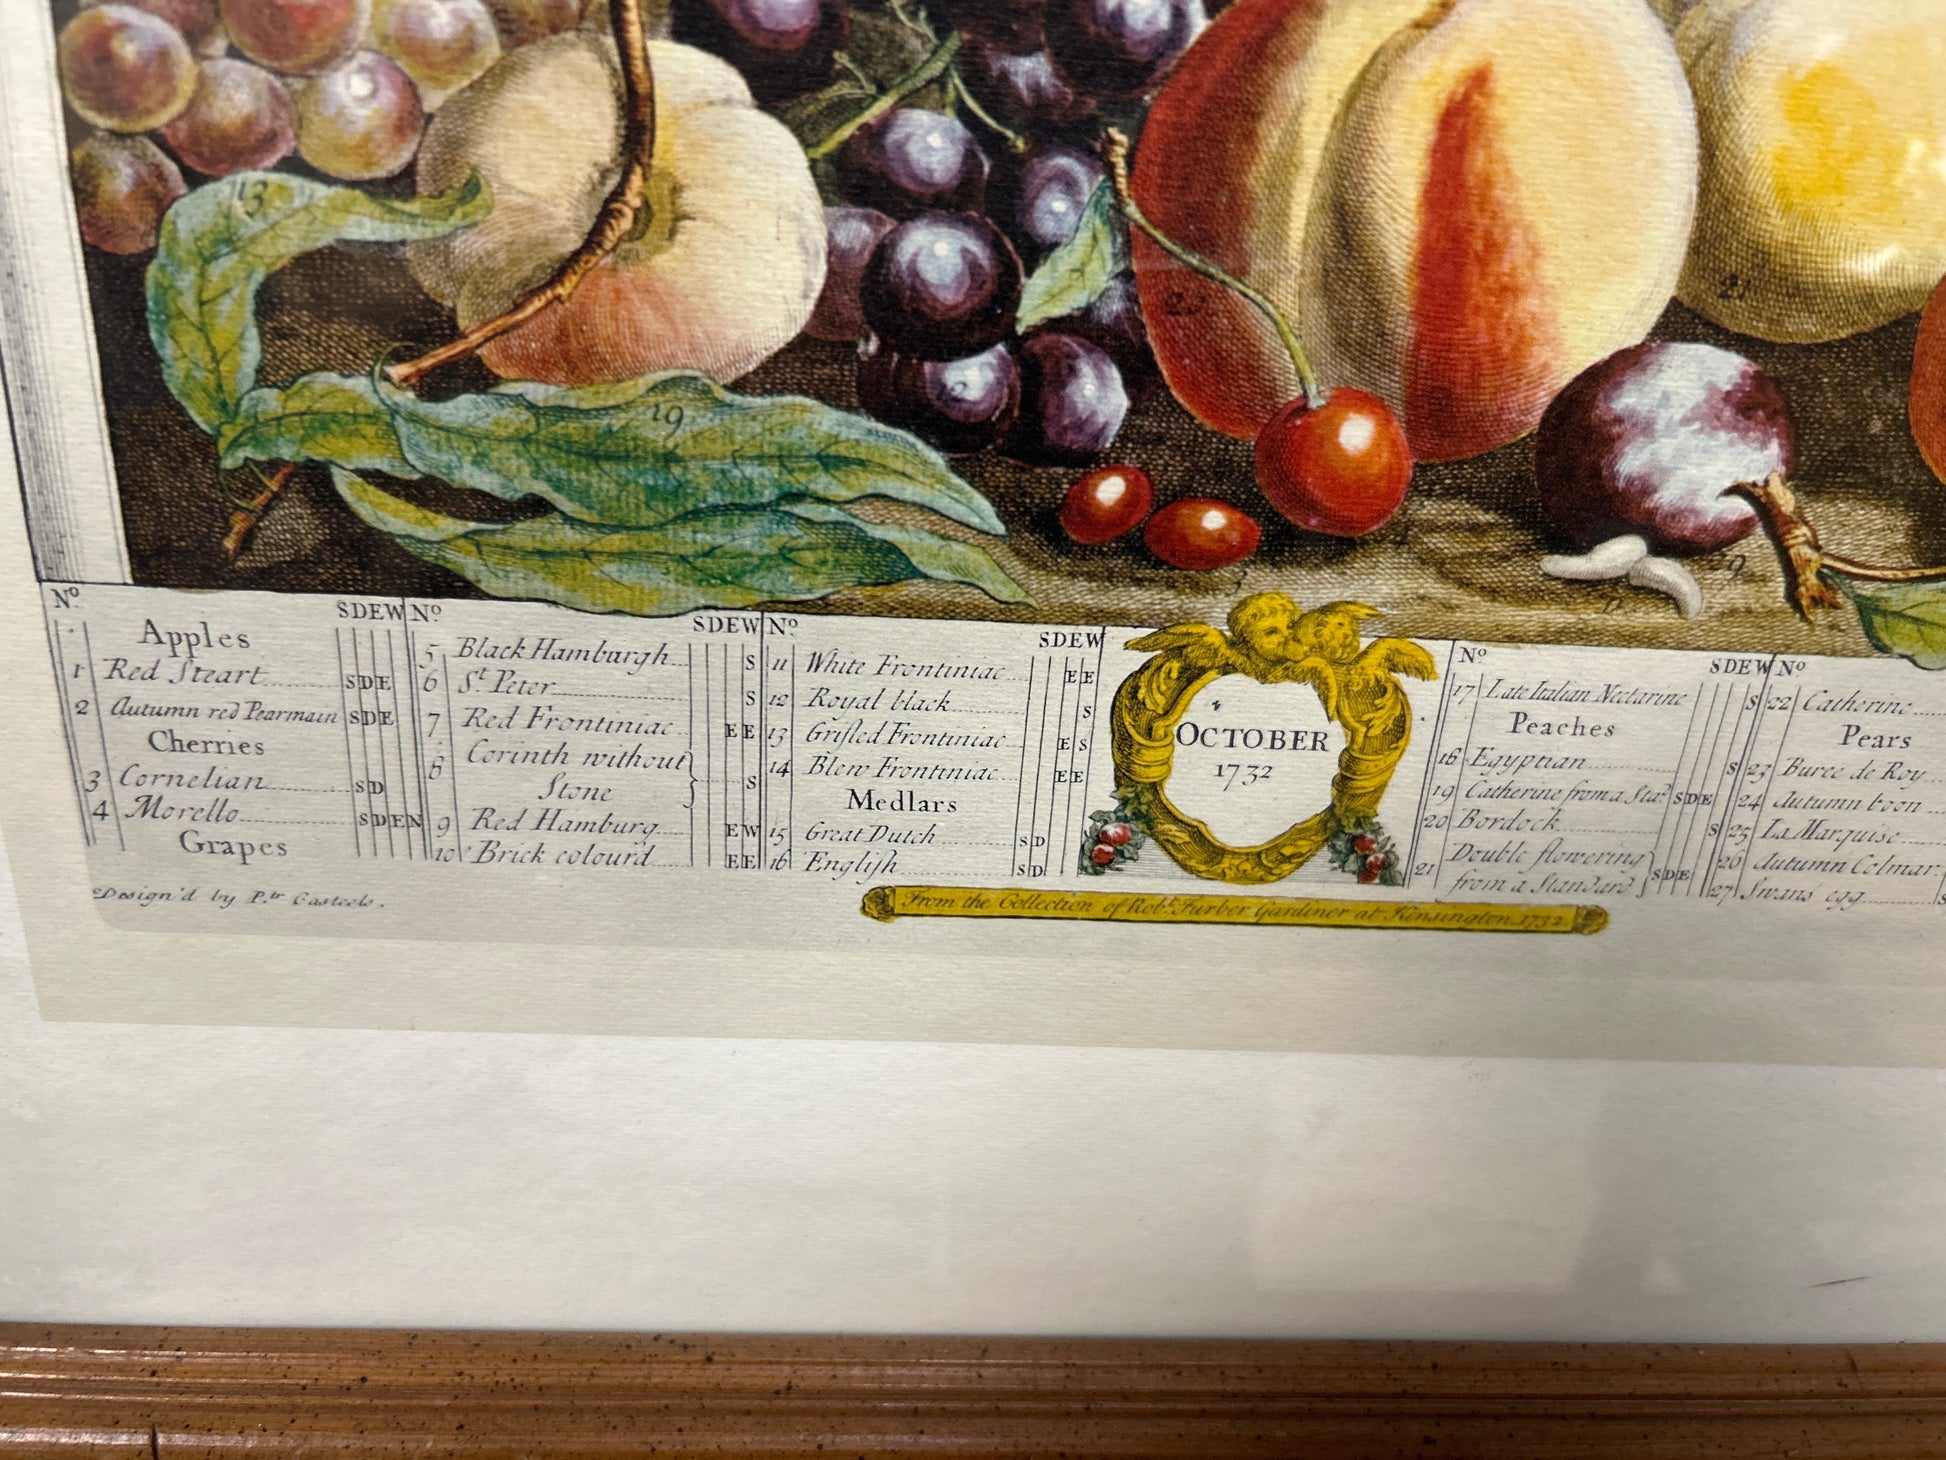 13
19
23
21
5
No. SDEW
Apples
1 Red Steart S D E
2 Autumn red Pearmain S D E
Cherries
3 Cornelian S D
4 Morello S D E N
Grapes
No. SDEW
5 Black Hamburgh S
6 St. Peter S
7 Red Frontiniac E E
8 Corinth without Stone S
9 Red Hamburg E W
10 Brick colourd E E
No. SDEW
11 White Frontiniac E E
12 Royal black S
13 Grisled Frontiniac E S
14 Blew Frontiniac E E
Medlars
15 Great Dutch S D
16 English S D
OCTOBER
1732
No. SDEW
17 Late Italian Nectarine S
Peaches
18 Egyptian S
19 Catherine from a Sta.d S D E
20 Bordock S
21 Double flowering from a Standard S D E
No.
22 Catherine
Pears
23 Buree de Roy
24 Autumn boon
25 La Marquise
26 Autumn Colmar
27 Swans egg S
Design'd by P.tr Casteels.
From the Collection of Rob.t Furber Gardiner at Kensington 1732